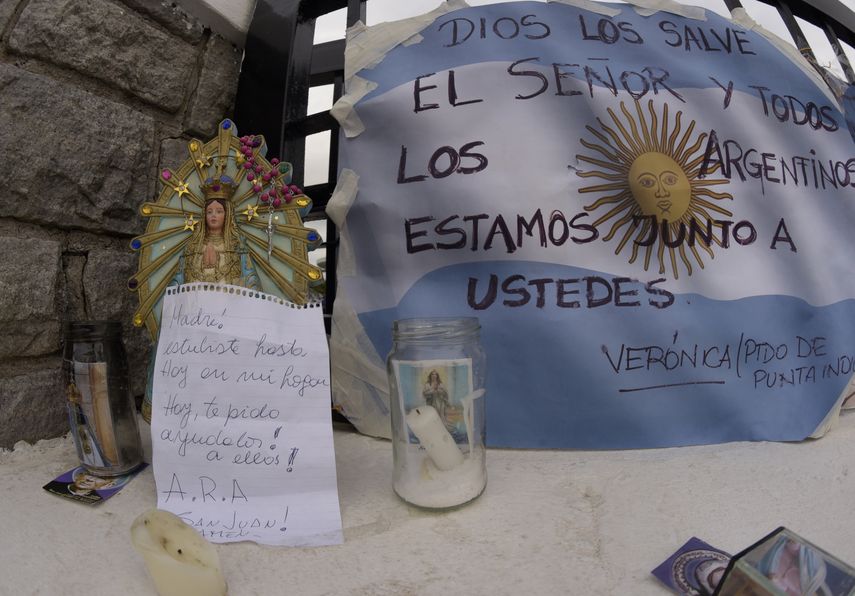 DIOS LOS SALVE
EL SEÑOR Y TODOS
LOS ARGENTINOS
ESTAMOS JUNTO A
USTEDES.
VERÓNICA/PTDO DE
PUNTA INDIO
Madre!
estubiste hasta
Hoy en mi hogar
Hoy, te pido
ayudalos!
a ellos!
A.R.A
SAN JUAN!
AMEN